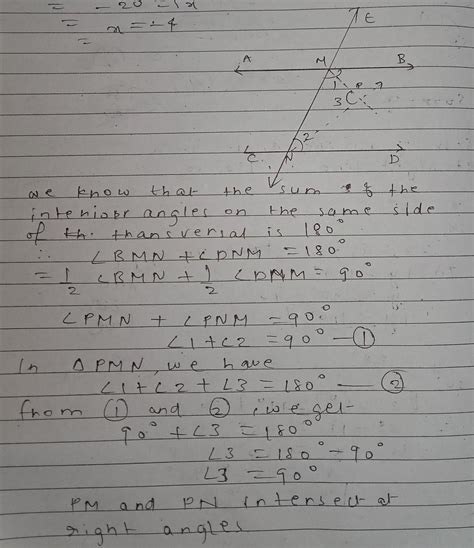 = - 20 = 5x
= x = -4
=
E
A M B
1 P ?
3
2
C N D
we know that the sum of the
interiour angles on the same side
of th. transversal is 180°
∴ ∠BMN + ∠DNM = 180°
= 1/2 ∠BMN + 1/2 ∠DNM = 90°
∠PMN + ∠PNM = 90°
∠1 + ∠2 = 90° — ①
In △PMN, we have
∠1 + ∠2 + ∠3 = 180° — ②
from ① and ②, we get-
90° + ∠3 = 180°
∠3 = 180° - 90°
∠3 = 90°
PM and PN intersect at
right angles